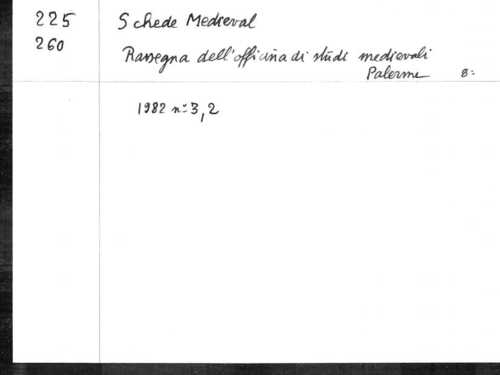 225 Schede Medieval
260 Rassegna dell'officina di studi medievali
Palerme 8:
1982 n: 3, 2